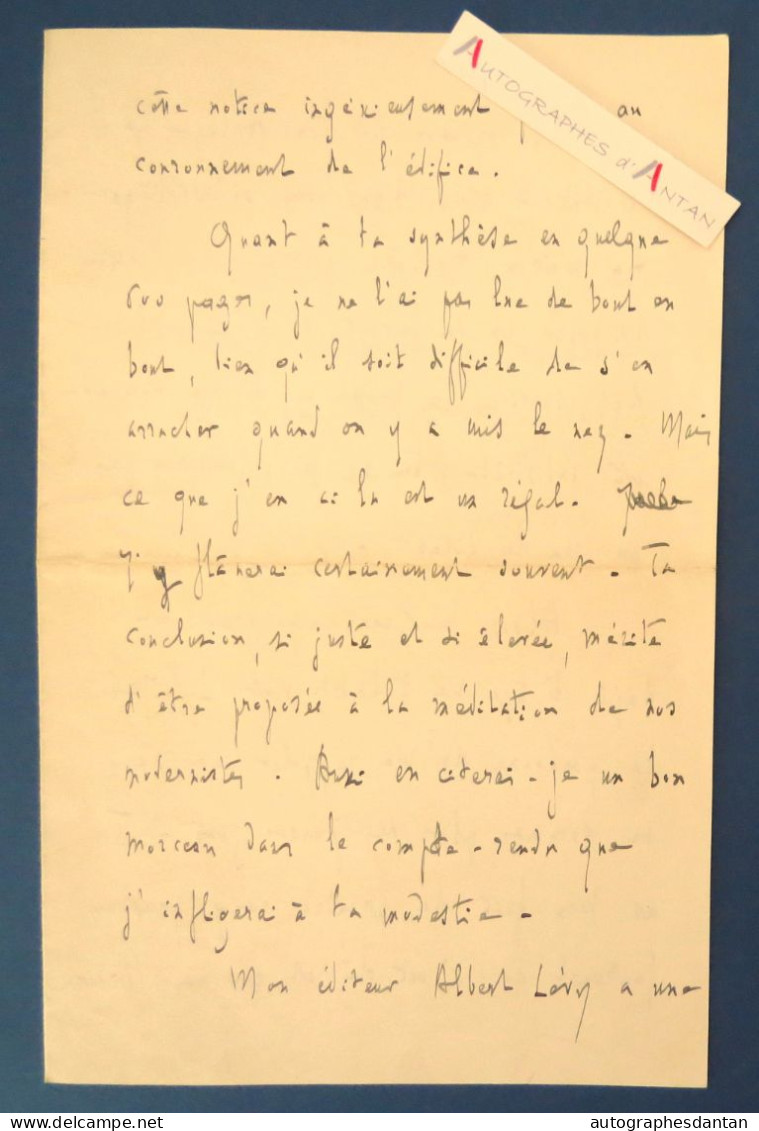 AUTOGRAPHES d'ANTAN
cette notice ingénieusement au
couronnement de l'édifice.
Quant à ta synthèse en quelque
500 pages, je ne l'ai pas lue de bout en
bout, bien qu'il soit difficile de s'en
arracher quand on y a mis le nez. Mais
ce que j'en ai lu est un régal.
J'y flânerai certainement souvent. Ta
conclusion, si juste et si élevée, mérite
d'être proposée à la méditation de nos
modernistes. Aussi en citerai-je un bon
morceau dans le compte-rendu que
j'infligerai à ta modestie.
Mon éditeur Albert Lévy a une
autographesdantan